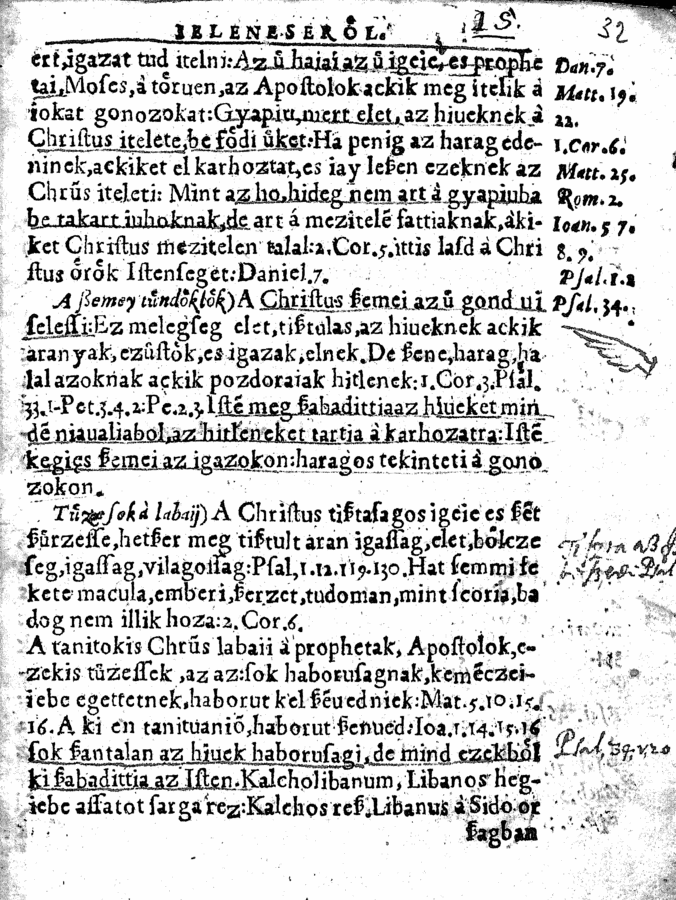 IELENESEROͤL.
15.
32
ert, igazat tud itelni: Az uͤ haiai az uͤ igeie, es prophe
tai, Moses, à toͤruen, az Apoſtolok ackik meg itelik à
iokat gonozokat: Gyapiu, mert elet, az hiueknek à
Chriſtus itelete, be foͤdi uͤket: Ha penig az harag ede-
ninek, ackiket el karhoztat, es iay leßen ezeknek az
Chrūs iteleti: Mint az ho, hideg nem art à gyapiuba
be takart iuhoknak, de art á mezitelē fattiaknak, àki-
ket Chriſtus mezitelen talal: 2. Cor. 5. ittis laſd à Chri
ſtus oͤroͤk Iſtenſeget: Daniel. 7.
A ßemey tuͤndoͤkloͤk) A Chriſtus ßemei az uͤ gond ui
ſeleſſi: Ez melegſeg elet, tißtulas, az hiueknek ackik
aranyak, ezuͤſtoͤk, es igazak, elnek. De ßene, harag, ha
lal azoknak ackik pozdoraiak hitlenek: 1. Cor. 3. Pſal.
33. 1-Pet. 3. 4. 2. Pe. 2. 3. Iſtē meg ßabadittia az hiueket min
dē niaualiabol, az hitleneket tartia à karhozatra: Iſtē
kegies ßemei az igazokon: haragos tekinteti à gono
zokon.
Tuͤzes ſok à labaij) A Chriſtus tißtaſagos igeie es ßēt
ßuͤrzeſſe, hetßer meg tißtult aran igaſſag, elet, boͤlcze
ſeg, igaſſag, vilagoſſag: Pſal, 1. 12. 119. 130. Hat ſemmi fe
kete macula, emberi, ßerzet, tudoman, mint ſcoria, ba
dog nem illik hoza: 2. Cor. 6.
A tanitokis Chrūs labaii à prophetak, Apoſtolok, e-
zekis tuͤzeſſek, az az: ſok haboruſagnak, kemēczei-
iebe egettetnek, haborut kel ßēuedniek: Mat. 5. 10. 15.
16. A ki en tanituaniō, haborut ßenued: Ioa. 1. 14. 15. 16
ſok ßantalan az hiuek haboruſagi, de mind ezekboͤl
ki ßabadittia az Iſten. Kalcholibanum, Libanos heg-
iebe aſſatot ſarga rez: Kalchos reß, Libanus à Sido or
ßagban
Dan. 7.
Matt. 19.
22.
1. Cor. 6.
Matt. 25.
Rom. 2.
Ioan. 5 7.
8. 9.
Pſal. 1. 2
Pſal. 34.